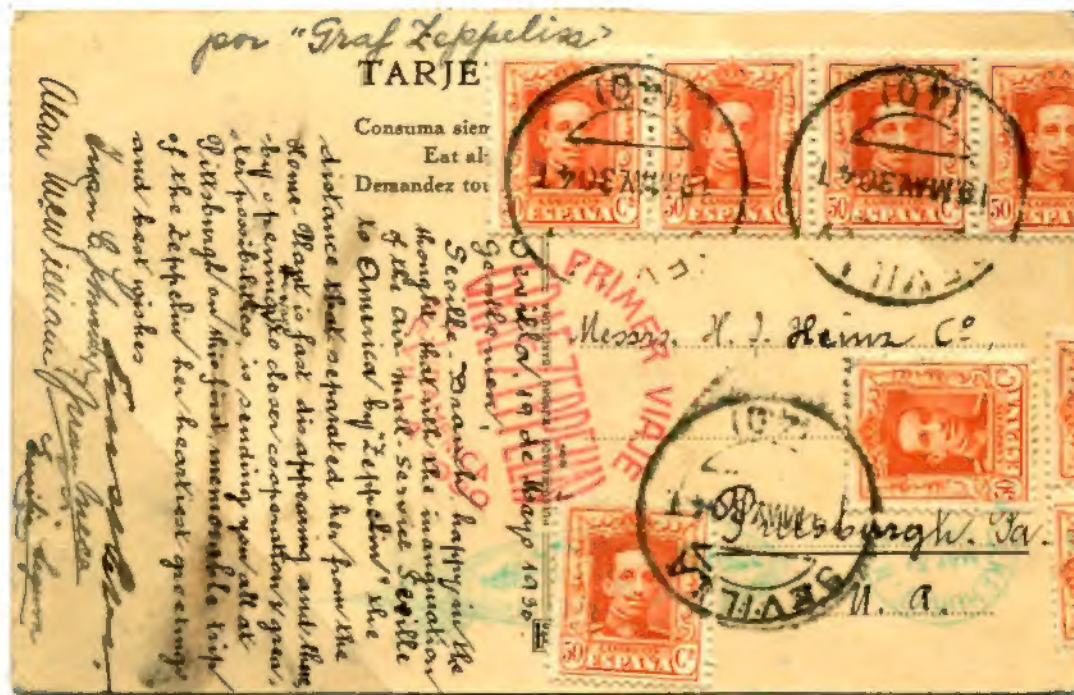 por "Graf Zeppelin"
TARJE
Consuma siem
Eat al
Demandez tou
Sevilla 19 de Mayo 1930.
Gentlemen:
Seville-Branch happy in the
thought that with the inauguration
of the air mail-service Seville
to America by "Zeppelin" the
distance that separated her from the
Home-Plant is fast disappearing and thus
by opening to closer cooperation & grea-
ter possibilities, is sending you all at
Pittsburgh on this first memorable trip
of the Zeppelin her heartiest greetings
and best wishes
Juan E
Allan
Emilio
Messrs. H. J. Heinz Cº,
Pittsburgh. Pa.
U. a.
PRIMER VIAJE
50 ESPAÑA Cs
50 ESPAÑA Cs
50 ESPAÑA Cs
50
50 ESPAÑA Cs
50 ESPAÑA Cs
CORREOS
(40)
19.MAY.30 4T
(40)
19.MAY.30 4T
SEVILLA
(40)
MAY.30 4T
SEVILLA